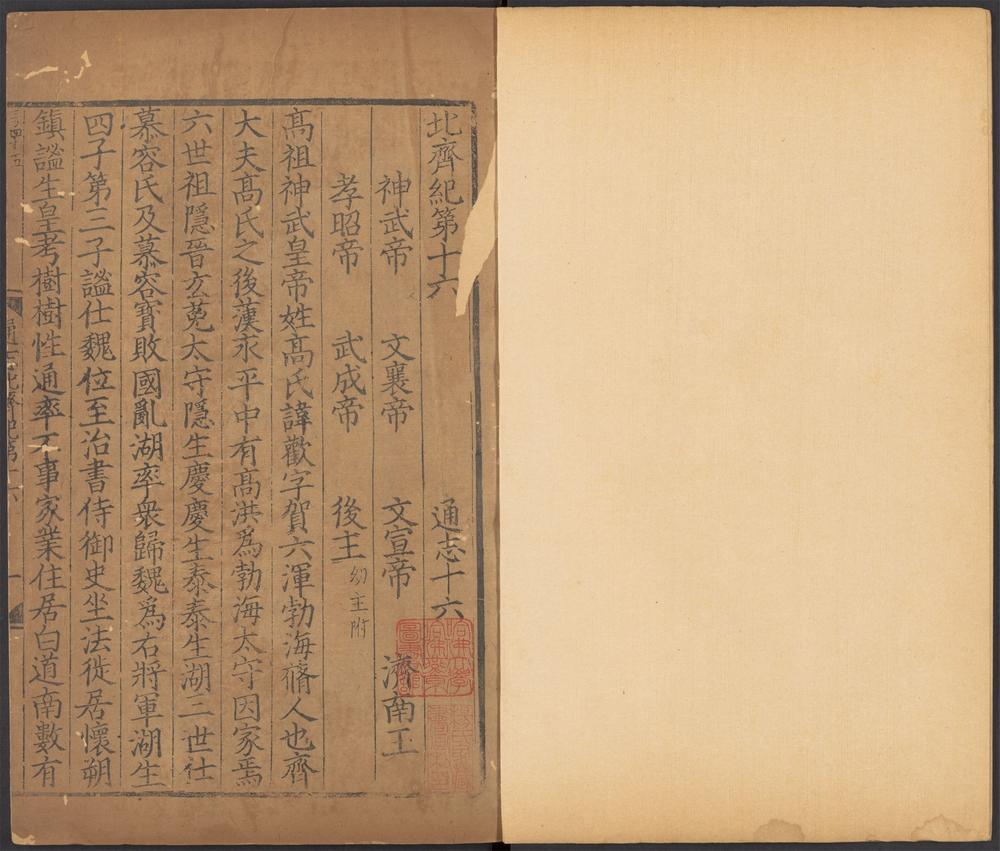 北齊紀第十六 通志十六
神武帝 文襄帝 文宣帝 濟南王
孝昭帝 武成帝 後主 幼主附
髙祖神武皇帝姓髙氏諱歡字賀六渾勃海蓨人也齊
大夫髙氏之後漢永平中有髙洪爲勃海太守因家焉
六世祖隱晉玄菟太守隱生慶慶生泰泰生湖三世仕
慕容氏及慕容寳敗國亂湖率衆歸魏爲右將軍湖生
四子第三子謐仕魏位至治書侍御史坐法徙居懷朔
鎮謐生皇考樹樹性通率不事家業住居白道南數有